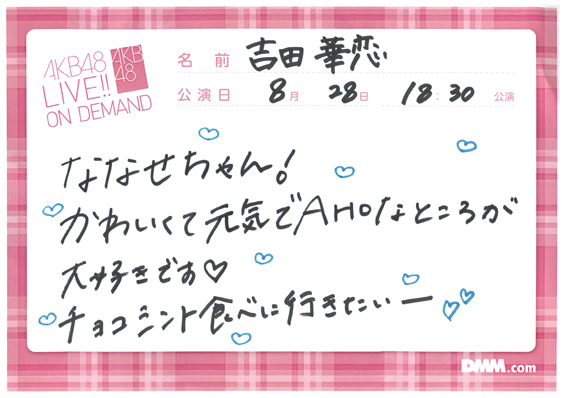 AKB48
LIVE!!
ON DEMAND
AKB
48
名前 吉田 華恋
公演日 8月 28日 18:30 公演
ななせちゃん!
かわいくて元気でAHOなところが
大好きです♡
チョコミント食べに行きたいー
DMM.com